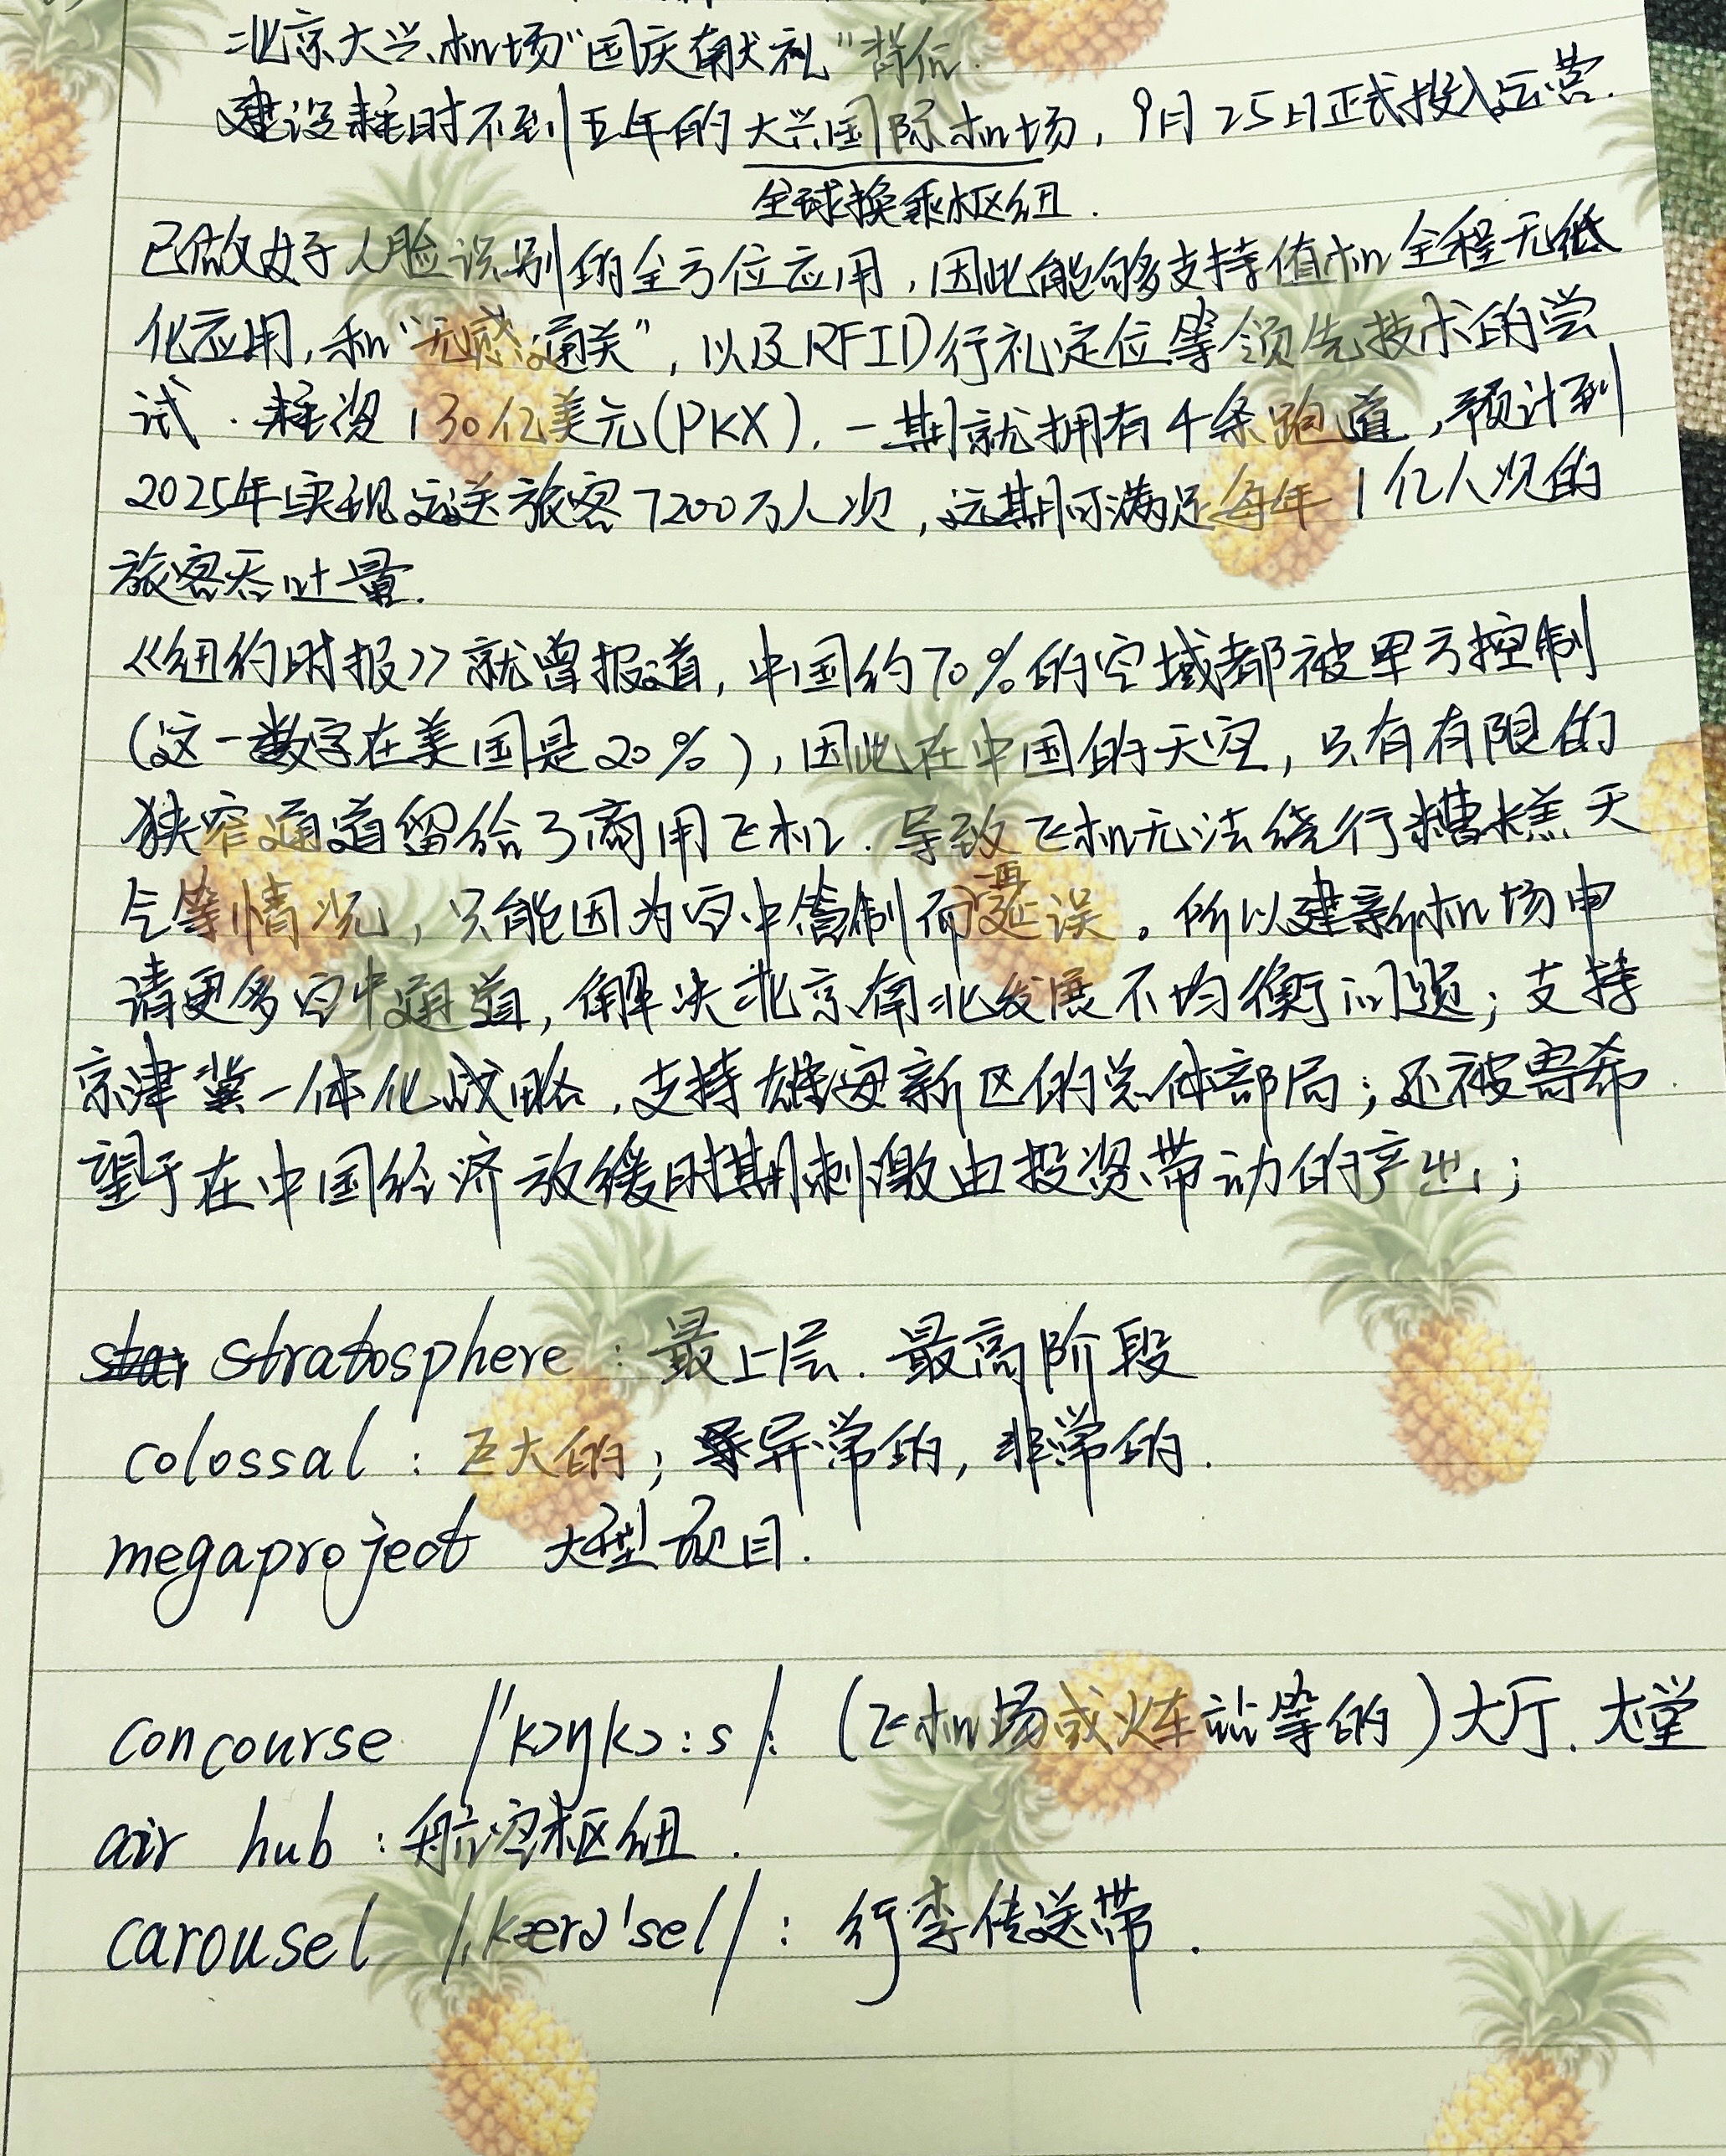 北京大兴机场“国庆献礼”背后.
建设耗时不到五年的大兴国际机场，9月25日正式投入运营.
全球换乘枢纽.
已做好人脸识别的全方位应用，因此能够支持值机全程无纸
化应用，和“无感通关”，以及RFID行礼定位等领先技术的尝
试．耗资130亿美元(PKX).一期就拥有4条跑道，预计到
2025年实现运送旅客7200万人次，远期可满足每年1亿人次的
旅客吞吐量.
《纽约时报》就曾报道，中国约70%的空域都被军方控制
(这一数字在美国是20%)，因此在中国的天空，只有有限的
狭窄通道留给了商用飞机．导致飞机无法绕行糟糕天
气等情况，只能因为空中管制而一再延误。所以建新机场申
请更多空中通道，解决北京南北发展不均衡问题；支持
京津冀一体化战略．支持雄安新区的总体部局；还被寄希
望于在中国经济放缓时期刺激由投资带动的产出；
stratosphere：最上层．最高阶段
colossal：巨大的；异常的，非常的．
megaproject 大型项目．
concourse /'kɔŋkɔ:s/：(飞机场或火车站等的)大厅．大堂
air hub：航空枢纽．
carousel /ˌkærə'sel/：行李传送带．